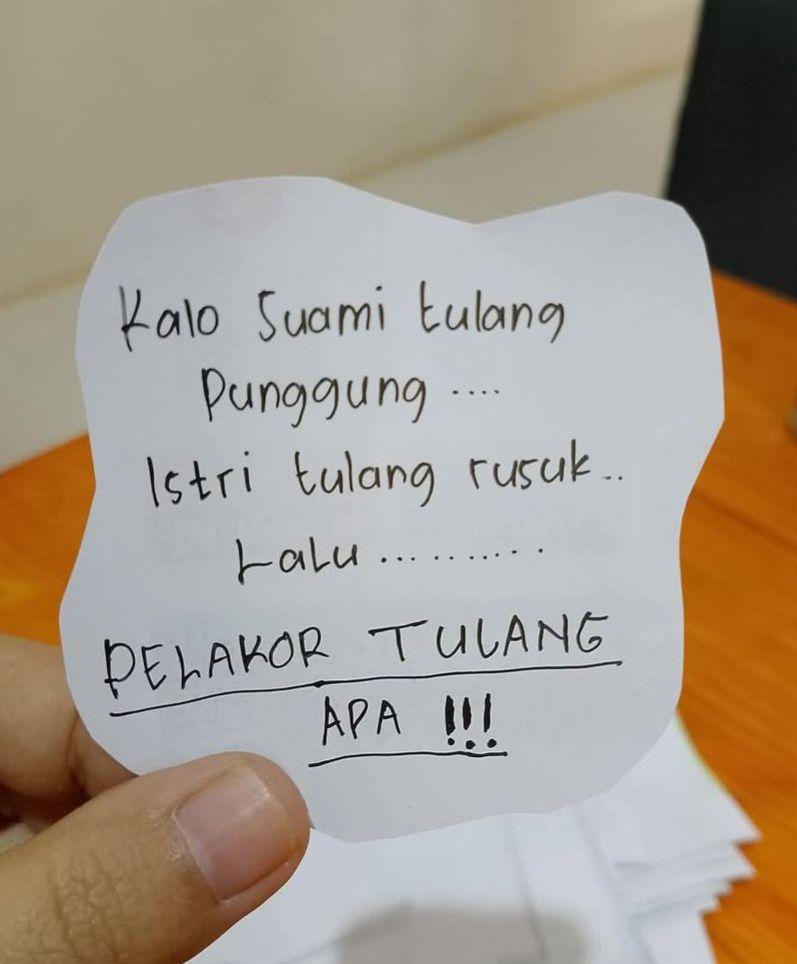 Kalo Suami tulang
Punggung ....
Istri tulang rusuk..
Lalu ..........
PELAKOR TULANG
APA !!!